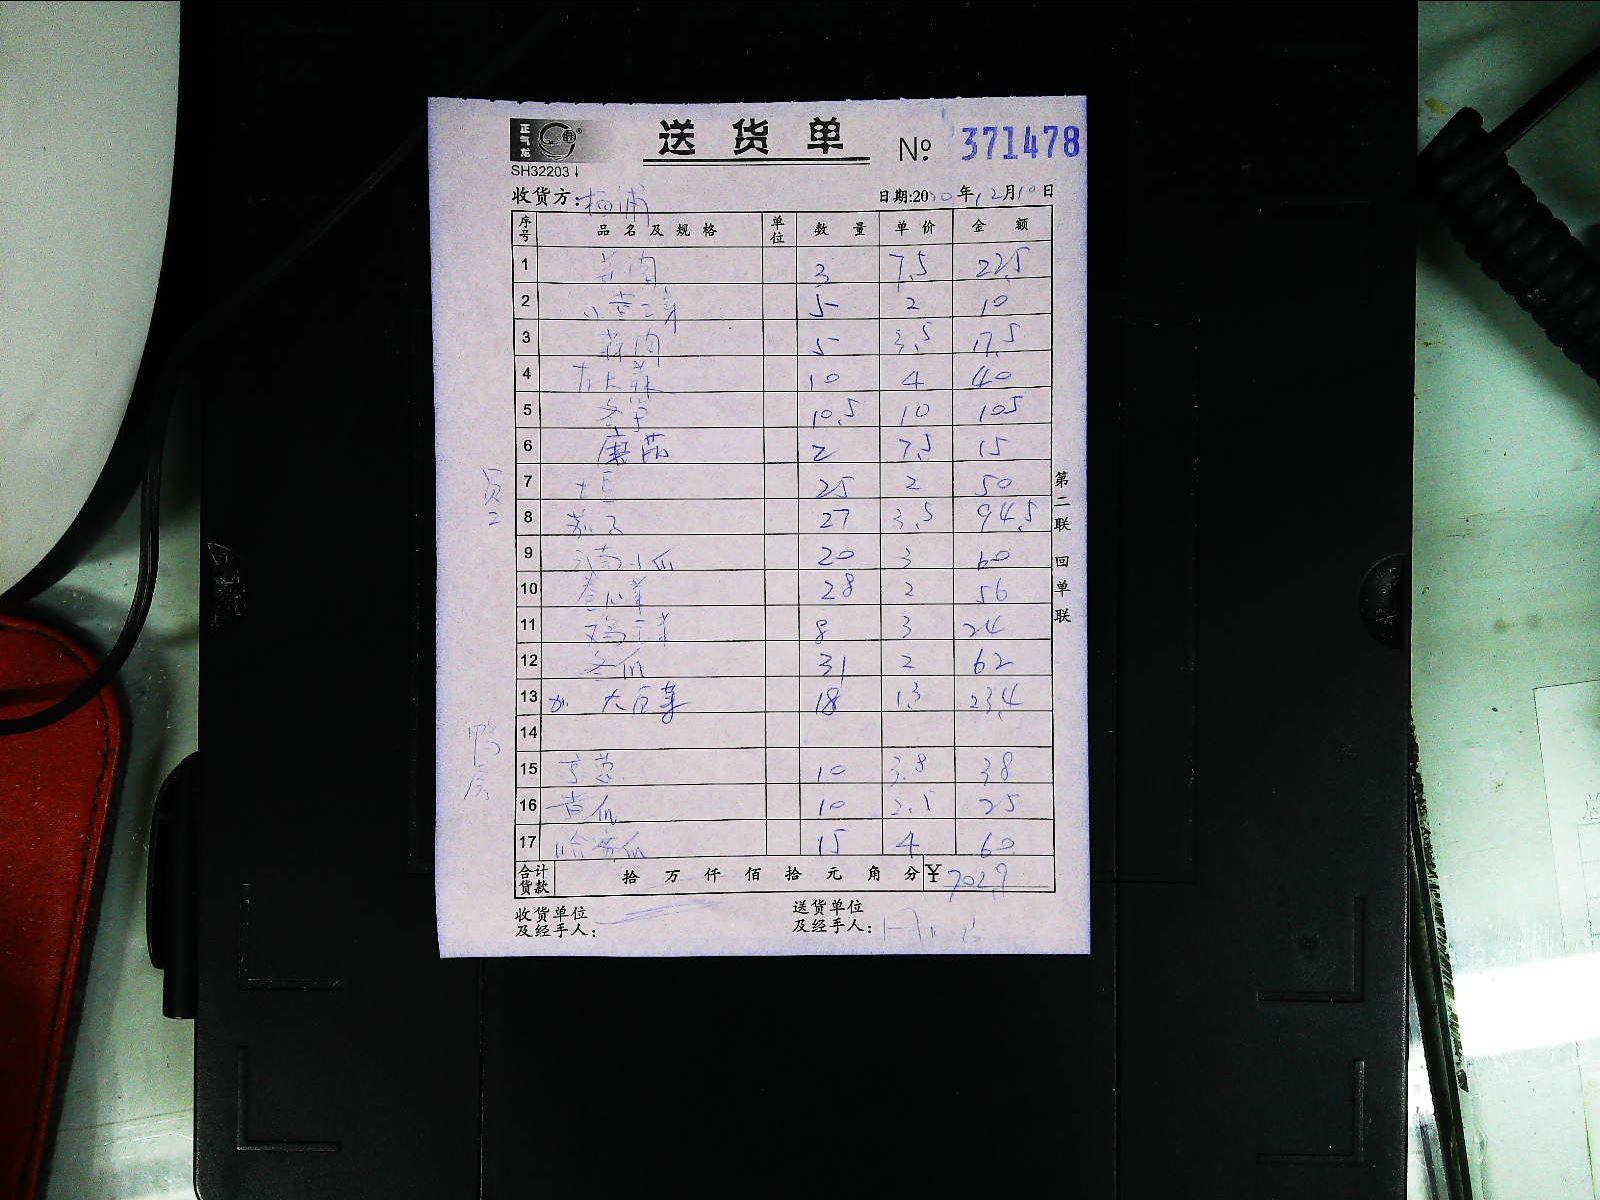 正气龙
送货单 № 371478
SH32203
收货方：杨浦 日期:2020年12月10日
序号 品名及规格 单位 数量 单价 金额
1 3 7.5 22.5
2 5 2 10
3 5 3.5 17.5
4 10 4 40
5 冬笋 10.5 10 105
6 蘑菇 2 7.5 15
7 土豆 25 2 50
8 茄子 27 3.5 94.5
9 云南小瓜 20 3 60
10 卷心菜 28 2 56
11 鸡毛菜 8 3 24
12 冬瓜 31 2 62
13 加 大白菜 18 1.3 23.4
14
15 京葱 10 3.8 38
16 黄瓜 10 2.5 25
17 哈密瓜 15 4 60
合计货款 拾 万 仟 佰 拾 元 角 分 ¥ 702.9
收货单位及经手人：
送货单位及经手人：
第二联 回单联
鸭房